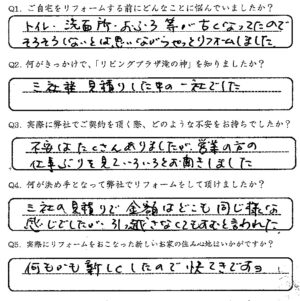 Q1. ご自宅をリフォームする前にどんなことに悩んでいましたか？
トイレ・洗面所・おふろ等が古くなってたので
そろそろしないとは思いながらやっとリフォームしました
Q2. 何がきっかけで、「リビングプラザ滝の神」を知りましたか？
三社様見積りした中の一社でした
Q3. 実際に弊社でご契約を頂く際、どのような不安をお持ちでしたか？
不安はたくさんありましたが、営業の方の
仕事ぶりを見ていろいろとお聞きしました
Q4. 何が決め手となって弊社でリフォームをして頂けましたか？
三社の見積りで金額はどこも同じ様な
感じでしたが、引っ越さなくてもすむと言われた
Q5. 実際にリフォームをおこなった新しいお家の住み心地はいかがですか？
何もかも新しくしたので快てきですョ